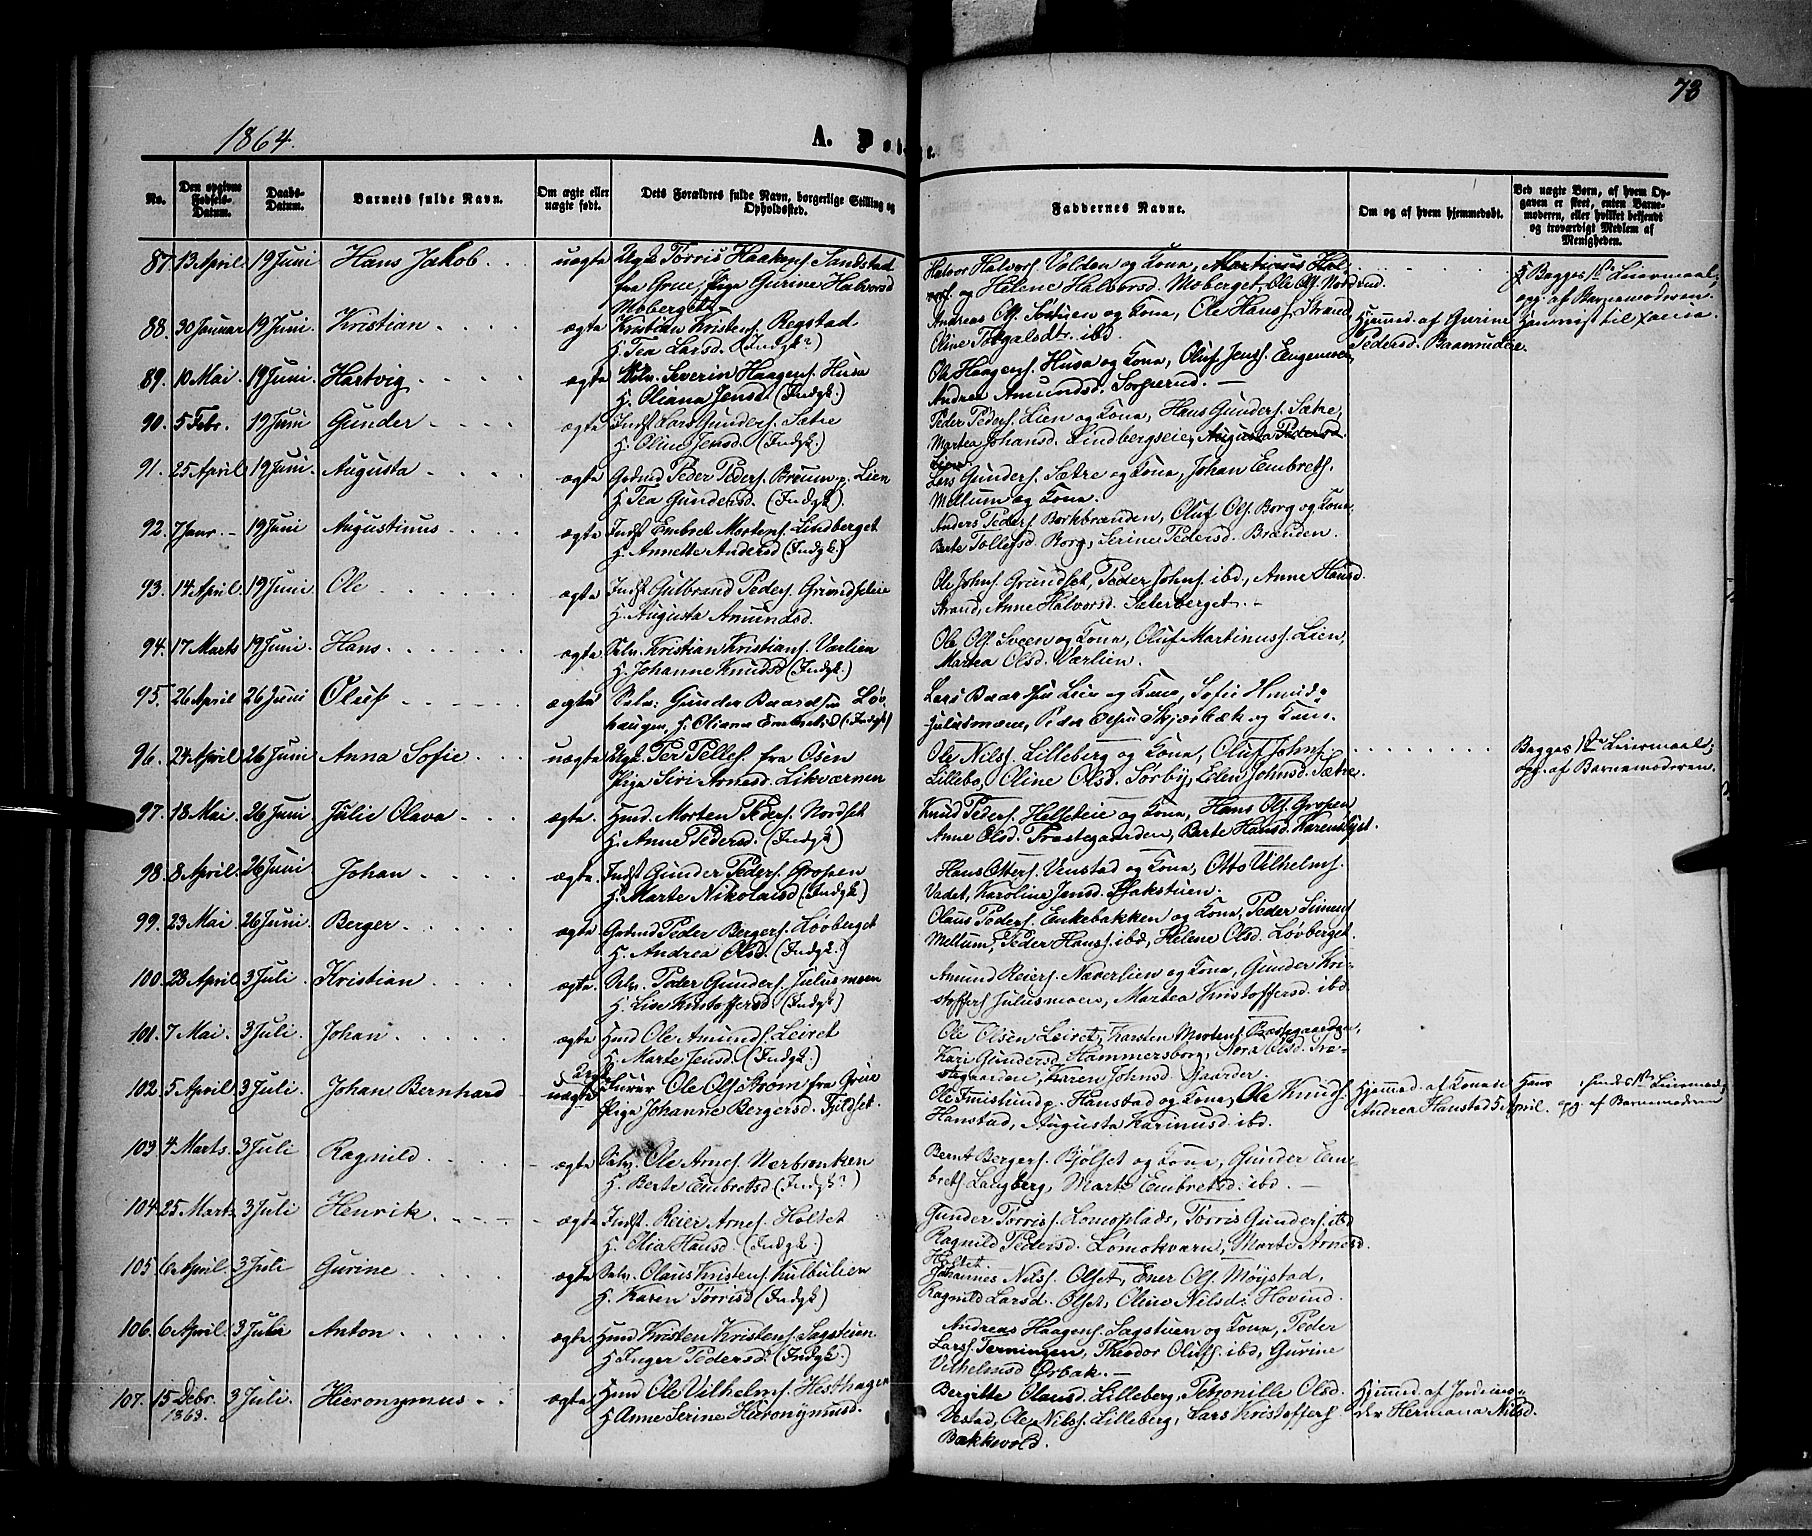 73
1864.
A. Døbte.
No.
Den opgivne Fødsels-Datum.
Daabs-Datum.
Barnets fulde Navn.
Om ægte eller uægte født.
Dets Forældres fulde Navn, borgerlige Stilling og Opholdssted.
Faddernes Navne.
Om og af hvem hjemmedøbt.
Ved uægte Børn, af hvem Opgaven er skeet, enten Barnemoderen, eller hvilket bekjendt og troværdigt Medlem af Menigheden.
87 13 April 19 Juni Hans Jakob uægte Ugk. Torris Haakens. Sandstad
fra Grue, Pige Gurine Halvorsd
Moberget
Halvor Halvors. Volden og Kona, Martinus Hal-
vors. og Helene Halvorsd. Moberget, Ole Ols. Nordsund.
Begges 1ste Leiermaal,
opg. af Barnemoderen.
88. 30 Januar 19 Juni. Kristian ægte Kristian Kristens. Regstad
H. Tea Larsd. (Indgk.)
Andreas Ols. og Kona, Ole Hans. Strand
Oline ibd.
Hjemmed. af Gurine
Pedersd. Baarruder.
89. 10 Mai 19 Juni. Hartvig ægte Selv. Severin Haagens. Husa
H. Oliana Jensd. (Indgk.)
Ole Haagens. Husa og Kona, Oluf Jens. Engenmoen,
Andrea Amundsd. Sorperud.
90. 5 Febr. 19 Juni Gunder ægte Indst Lars Gunders. Sætre
H. Oline Jensd. (Indgk.)
Peder Peders. Lien og Kona, Hans Gunders. Sætre,
Martea Johansd. Lindbergseie, Augusta Pedersd.
Lien
91. 25 April 19 Juni. Augusta ægte Gabrmd Peder Peders. Bruun p. Lien
H. Tea Gundersd. (Indgk).
Lars Gunders. Sætre og Kona, Johan Embrets.
Mellum og Kona.
92. 7 Janr. 19 Juni Augustinus ægte Indst Embret Mortens. Lindberget
H. Annette Andersd (Indgk.)
Anders Peders. Borkbrænden, Oluf Ols. Borg og Kona,
Berte Tollefsd. Borg, Serine Pedersd. Brænden.
93. 14 April. 19 Juni Ole ægte Indst Gulbrand Peders. Grundseteie
H. Augusta Amundsd.
Ole Johns. Grundset, Peder Johns. ibd, Anne Hansd.
Strand, Anne Halvorsd. Sæterberget.
94. 17 Marts 19 Juni. Hans ægte Selv. Kristian Kristians. Værlien
H. Johanne Knudsd (Indgk.)
Ole Ols. Sveen og Kona, Oluf Martinus. Lien,
Martea Olsd. Værlien.
95. 26 April 26 Juni Oluf ægte Selv: Gunder Baardsen Løv-
haugen, H. Oliana Embretsd (Indgk)
Lars Baardsen Lien og Kona, Sofie
Julusmoen, Peder Olsen Skjærbæk og Kona.
96. 24 April 26 Juni. Anna Sofie uægte Ugk. Per Pelles. fra Osen
Pige Siri Arnesd. Likværnen
Ole Nils. Lilleberg og Kona, Oluf Johns.
Lillebo, Oline Olsd. Sørby, Eden Johnsd. Sætre.
Begges 1ste Leiermaal;
opg. af Barnemoderen.
97. 18 Mai 26 Juni Julie Olava ægte. Hmd. Morten Peders. Nordset
H. Anne Pedersd. (Indgk)
Knud Peders. Helseteie og Kona, Hans Ols. Gropen,
Anne Olsd. Præstegaarden, Berte Hansd. Karenslyst.
98. 8 April. 26 Juni Johan ægte. Indst Gunder Peders. Gropen
H. Marte Nikolaisd (Indgk)
Hans Otters. Venstad og Kona, Otto Vilhelms.
Vadet, Karoline Jensd. Bakstuen.
99. 23 Mai 26 Juni. Berger ægte Gabrmd Peder Bergers. Løvberget
H. Andrea Olsd. (Indgk.)
Olaus Peders. Enkebakken og Kona, Peder Simens.
Mellum, Peder Hans. ibd, Helene Olsd. Løvberget.
100. 28 April 3 Juli. Kristian ægte Selv. Peder Gunders. Julusmoen
H. Lise Kristoffersd. (Indgk)
Amund Reiers. Næverlien og Kona, Gunder Kri-
stoffers Julusmoen, Martea Kristoffersd. ibd.
101. 7 Mai. 3 Juli. Johan ægte Hmd Ole Amunds. Leiret
H. Marte Jensd. (Indgk.)
Ole Olsen Leiret, Karsten Mortens. Præstegaarden,
Kari Gundersd. Hammersborg, Nora Olsd. Præ-
stegaarden, Karen Johnsd. Gaarder.
102. 5 April 3 Juli. Johan Bernhard uægte Ole Ols. Strøm fra Grue
Pige Johanne Bergersd. Fjeldset.
Ole p. Hanstad og Kona, Ole Knuds.
Hanstad, Augusta Karinusd. ibd.
Hjemmed. af Konede
Andrea Hanstad 5 April.
Hans hendes 1ste Leiermaal
opg. af Barnemoderen
103. 4 Marts. 3 Juli Ragnild ægte Selv. Ole Arnes. Nerbrenken
H. Berte Embretsd (Indgk)
Bernt Bergers. Bjølset og Kona, Gunder Em-
brets Langberg, Marte Embretsd. ibd.
104. 25 Marts 3 Juli Henrik ægte Indst. Reier Arnes. Holtet
H. Olia Hansd. (Indgk.)
Gunder Torris. Lomoplads, Torris Gunders. ibd
Ragnild Pedersd. Lømokværn, Marte Arnesd.
Holtet.
105. 6 April. 3 Juli Gurine ægte Selv. Olaus Kristens. Kulbulien
H. Karen Torrisd (Indgk)
Johannes Nils. Olset, Ener Ols. Møystad,
Ragnild Larsd. Olset, Oline Nilsd. Hovind.
106. 6 April. 3 Juli Anton ægte Hmd Kristen Kristens. Sagstuen
H. Inger Pedersd. (Indgk.)
Andreas Haagens. Sagstuen og Kona, Peder
Lars. Terningen, Theodor Olufs. ibd, Gurine
Vilhelmsd Ørbak.
107. 15 Debr. 1863. 3 Juli. Hieronymus ægte Hmd Ole Vilhelms. Hesthagen
H. Anne Serine Hieronymusd.
Bergitte Olausd. Lilleberg, Petronille Olsd.
Vestad, Ole Nils. Lilleberg, Lars Kristoffers.
Bækkevold.
Hjemmed. af Jordemo-
der Hermana Nilsd.